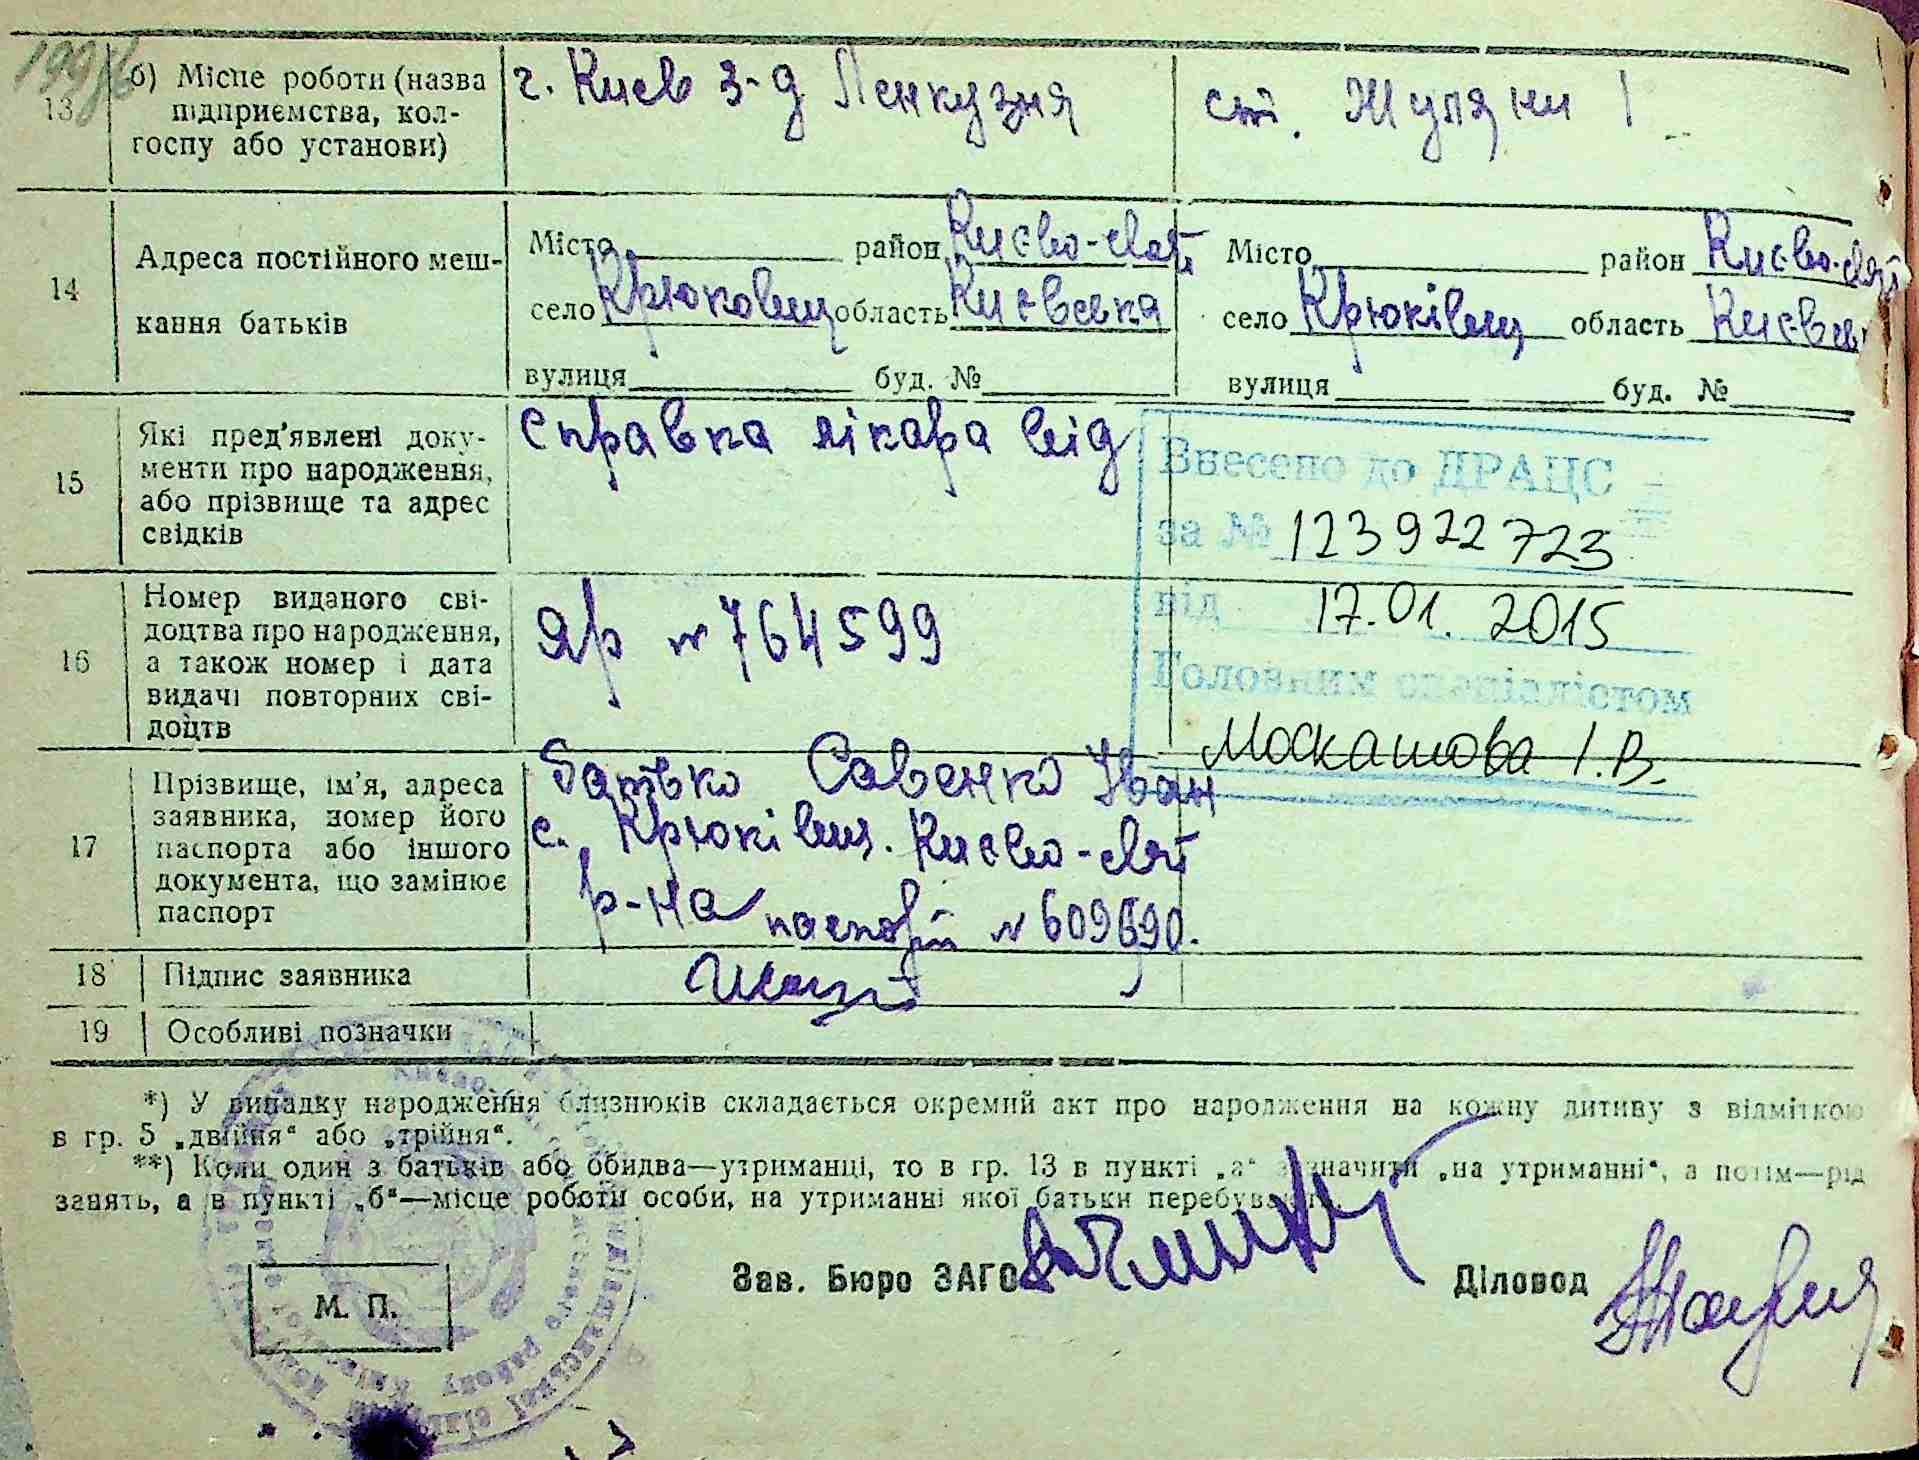 13 б) Місце роботи (назва підприємства, кол-госпу або установи)
г. Киев з-д Ленкузня
ст. Жуляни 1
14 Адреса постійного меш-
кання батьків
Місто район Києво-свят
село Крюковщ область Київська
вулиця буд. №
Місто район Києво-свят
село Крюківщ область Києвс
вулиця буд. №
15 Які пред'явлені доку-
менти про народження,
або прізвище та адрес
свідків
справка лікара від
Внесено до ДРАЦС
за № 123922723
від 17.01.2015
Головним спеціалістом
Москатова І.В.
16 Номер виданого сві-
доцтва про народження,
а також номер і дата
видачі повторних сві-
доцтв
ЯР № 764599
17 Прізвище, ім'я, адреса
заявника, номер його
паспорта або іншого
документа, що замінює
паспорт
батько Савенко Іван
с. Крюківщ. Києво-свят
р-на паспорт № 609690.
18 Підпис заявника
19 Особливі позначки
*) У випадку народження близнюків складається окремий акт про народження на кожну дитину з відміткою
в гр. 5 „двійня“ або „трійня“.
**) Коли один з батьків або обидва—утриманці, то в гр. 13 в пункті „а“ зазначити „на утриманні“, а потім—рід
занять, а в пункті „б“—місце роботи особи, на утриманні якої батьки перебувають
Зав. Бюро ЗАГС
Діловод
М. П.